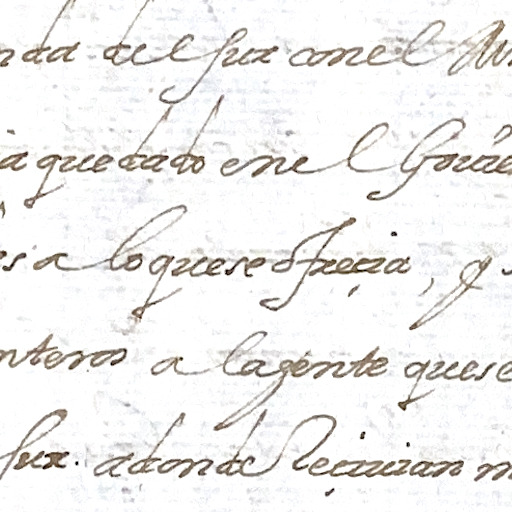 del fux con el
quedado en el Gou
a lo que se ofrecia, y
nteros a la gente que se
fux. adonde Reciuian m